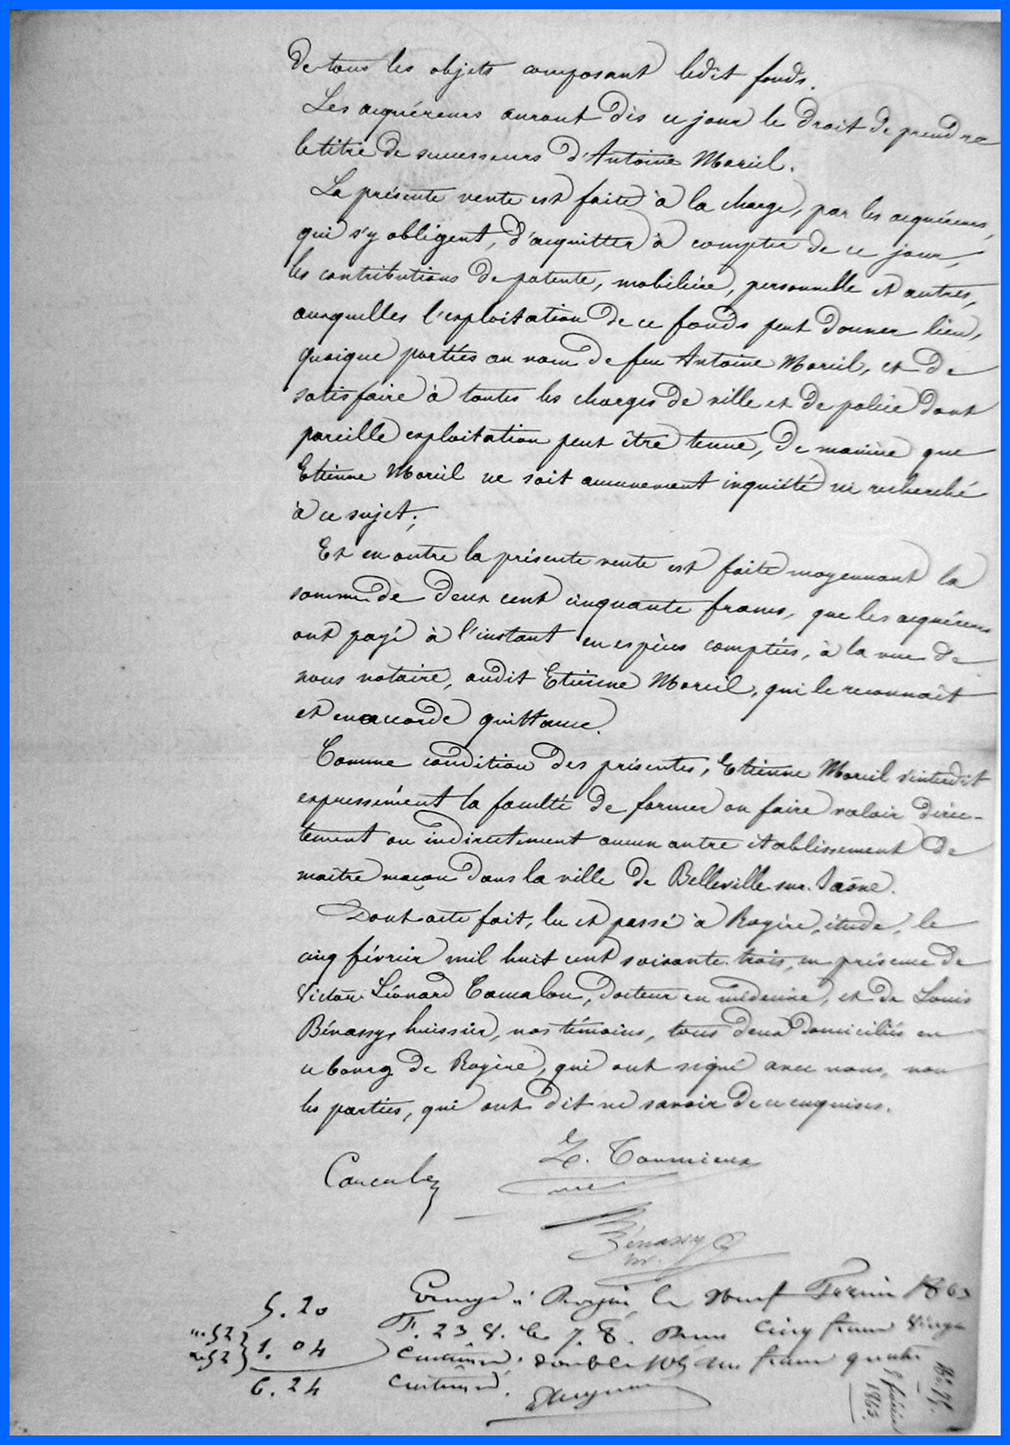 de tous les objets composant ledit fonds.
Les acquéreurs auront dès ce jour le droit de prendre
le titre de successeurs d'Antoine Moreil.
La présente vente est faite à la charge, par les acquéreurs,
qui s'y obligent, d'acquitter à compter de ce jour,
les contributions de patente, mobilière, personnelle et autres,
auxquelles l'exploitation de ce fonds peut donner lieu,
quoique portées au nom de feu Antoine Moreil, et de
satisfaire à toutes les charges de ville et de police dont
pareille exploitation peut être tenue, de manière que
Etienne Moreil ne soit aucunement inquiété ni recherché
à ce sujet;
Et en outre la présente vente est faite moyennant la
somme de deux cent cinquante francs, que les acquéreurs
ont payé à l'instant en espèces comptées, à la vue de
nous notaire, audit Etienne Moreil, qui le reconnaît
et en accorde quittance.
Comme condition des présentes, Etienne Moreil s'interdit
expressément la faculté de former ou faire valoir direc-
tement ou indirectement aucun autre établissement de
maître maçon dans la ville de Belleville sur Saône.
Dont acte fait, lu et passé à Royère, étude, le
cinq février mil huit cent soixante trois, en présence de
Victor Léonard Cancalon, docteur en médecine, et de Louis
Bénassy, huissier, nos témoins, tous deux domiciliés en
ce bourg de Royère, qui ont signé avec nous, non
les parties, qui ont dit ne savoir de ce enquises.
Z. Toumieux
Bénassy
5.20
1.04
6.24
à Royère le neuf Février 1863
F. 23 V. C. 7. 8. Reçu cinq francs vingt
centimes, double 10e un franc quatre
centimes.
5 février
1863.